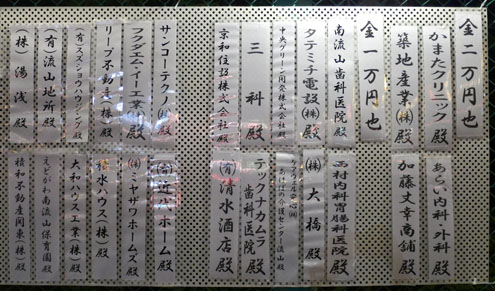 金二万円也
かまたクリニック殿
築地産業㈱殿
金一万円也
南流山歯科医院殿
タテミチ電設㈱殿
中央グリーン開発株式会社殿
三科殿
京和住設株式会社殿
サンコーテクノ㈱殿
フクダエム・イー工業㈲殿
リーブ不動産(株)殿
(有)スズショウハウジング殿
(有)流山地所殿
(株)湯浅殿
あらい内科・外科殿
加藤丈幸商舗殿
西村内科胃腸科医院殿
㈱大橋殿
あけぼの介護センター流山殿
テックナカムラ歯科医院殿
(有)清水酒店殿
ホーム殿
ミヤザワホームズ殿
積水ハウス(株)殿
大和ハウス工業(株)殿
えどがわ南流山保育園殿
積和不動産関東(株)殿